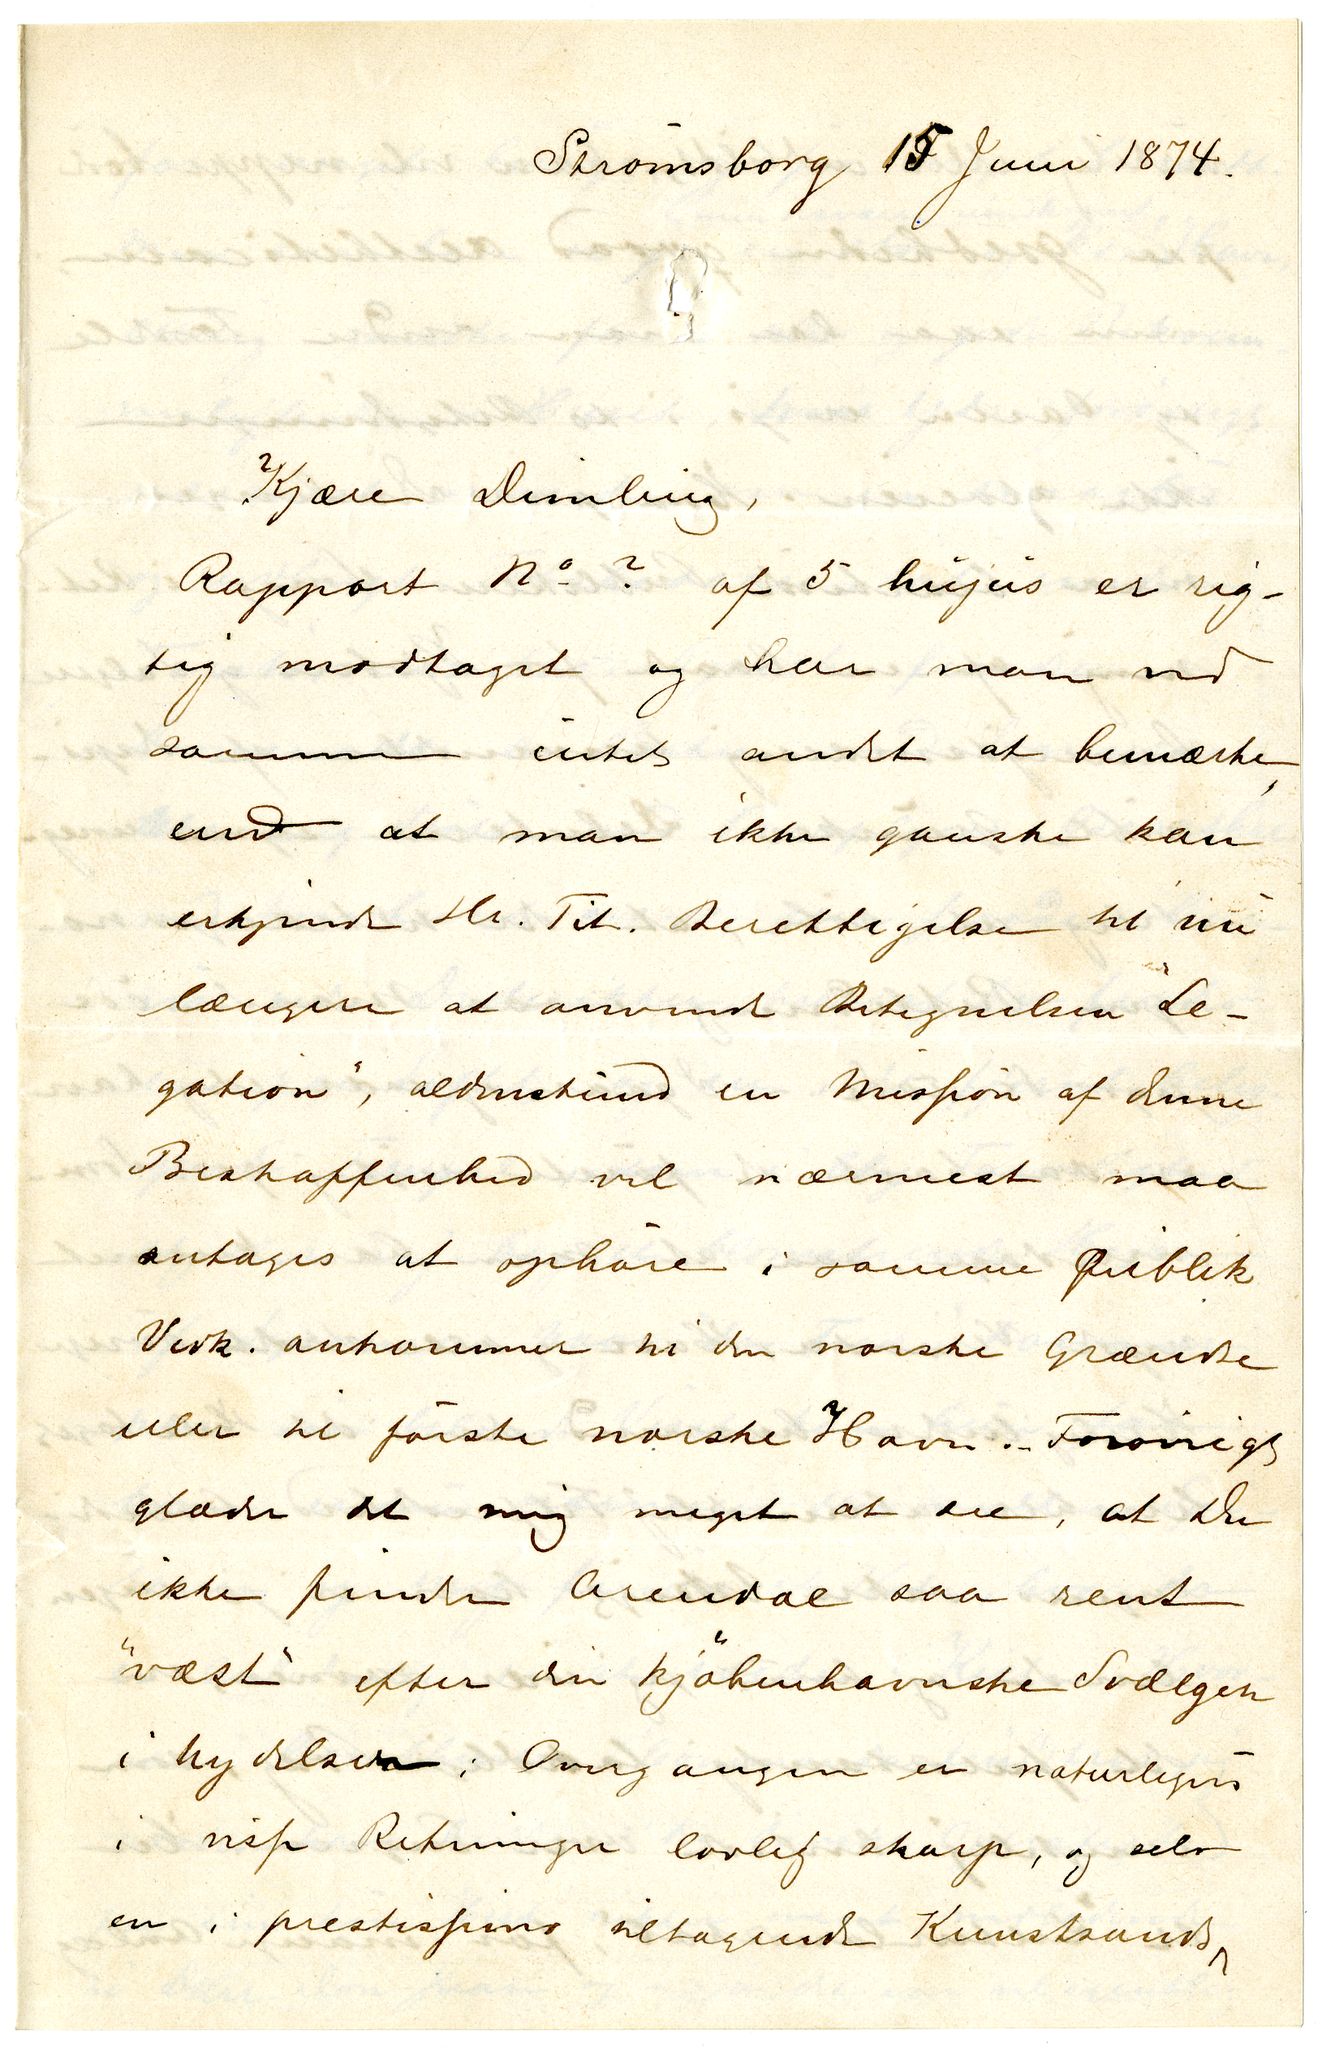 Strömsborg 15 Juni 1874.
Kjære Dimling,
Rapport No ? af 5 hujus er rig-
tig modtaget og har man ved
samme intet andet at bemærke,
end at man ikke ganske kan
erkjende Hr. Tit. Berettigelse til nu
længere at anvende Betegnelsen "Le-
gation", aldenstund en Mission af denne
Beskaffenhed vel nærmest maa
antages at ophöre i samme Öieblik
Vedk. ankommer til den norske Grændse
eller til förste norske Havn. – Forövrigt
glæder det mig meget at see, at Du
ikke finder Arendal saa rent
"væst" efter din kjöbenhavnske Svælgen
i Nydelser; Overgangen er naturligvis
i visse Retninger lovlig skarp, og selv
en i prestissimo tiltagende Kunstsands,